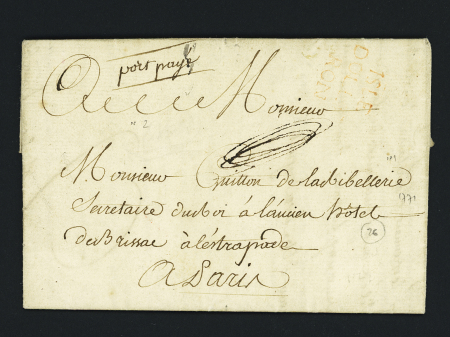 port payé
Monsieur
Monsieur Guillon de la Tibellerie
Secretaire du Roi á l'ancien hôtel
de Brissac à léstrapade
A Paris
26